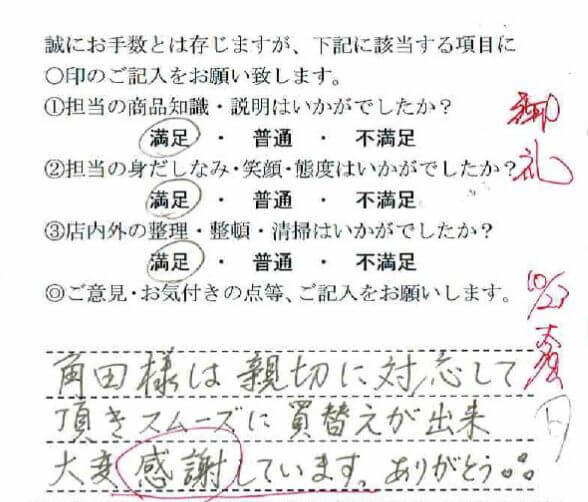 誠にお手数とは存じますが、下記に該当する項目に
〇印のご記入をお願い致します。
①担当の商品知識・説明はいかがでしたか？
満足 ・ 普通 ・ 不満足
②担当の身だしなみ・笑顔・態度はいかがでしたか？
満足 ・ 普通 ・ 不満足
③店内外の整理・整頓・清掃はいかがでしたか？
満足 ・ 普通 ・ 不満足
◎ご意見・お気付きの点等、ご記入をお願いします。
角田様は親切に対応して
頂きスムーズに買替えが出来
大変感謝しています。ありがとう
御礼
10/23